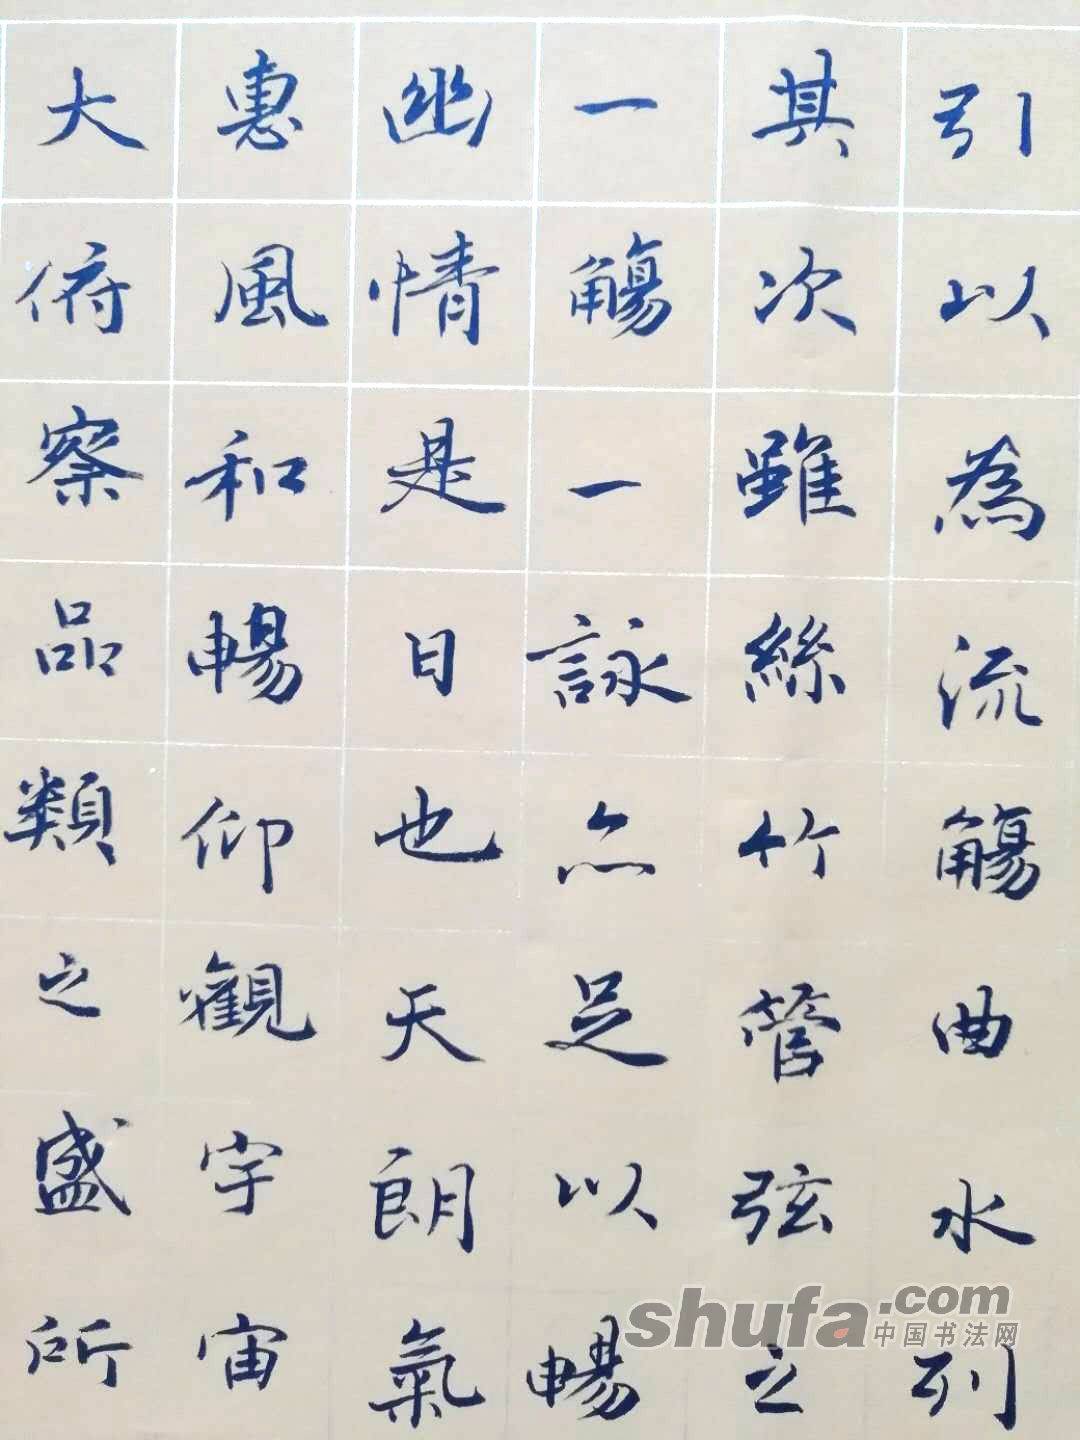 引以為流觴曲水列
其次雖絲竹管弦之
一觴一詠亦足以暢
幽情是日也天朗氣
惠風和暢仰觀宇宙
大俯察品類之盛所
shufa.com
中国书法网